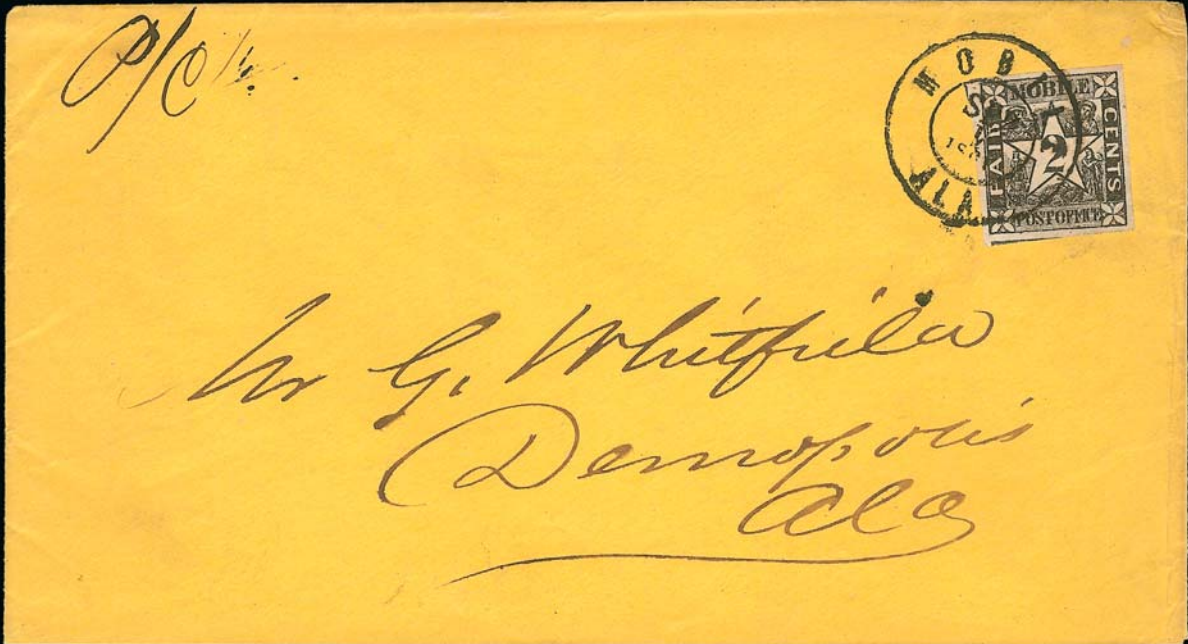 MOBILE
PAID
2
CENTS
POST OFFICE
ALA.
Mr G. Whitfield
Demopolis
Ala